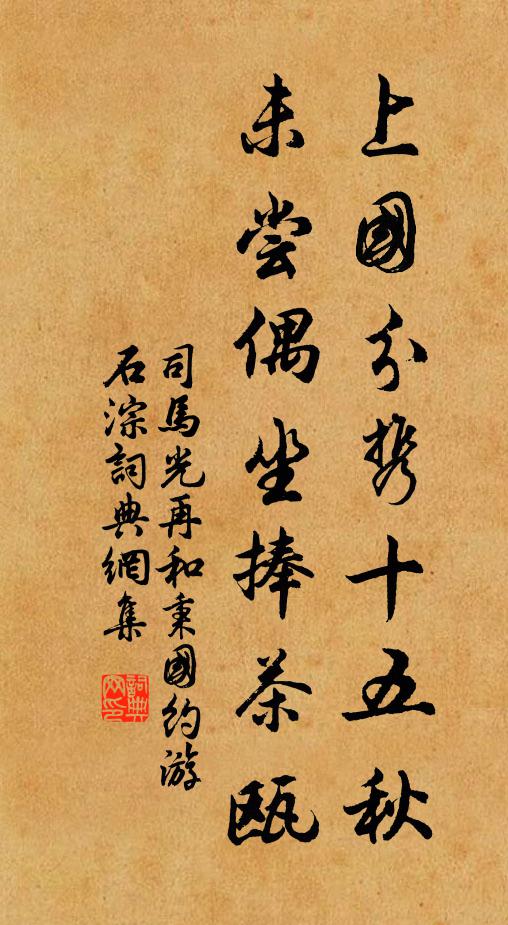 上國分携十五秋
未嘗偶坐捧茶甌
司馬光再和秉國約游
石淙詞典網集
詞典
网印